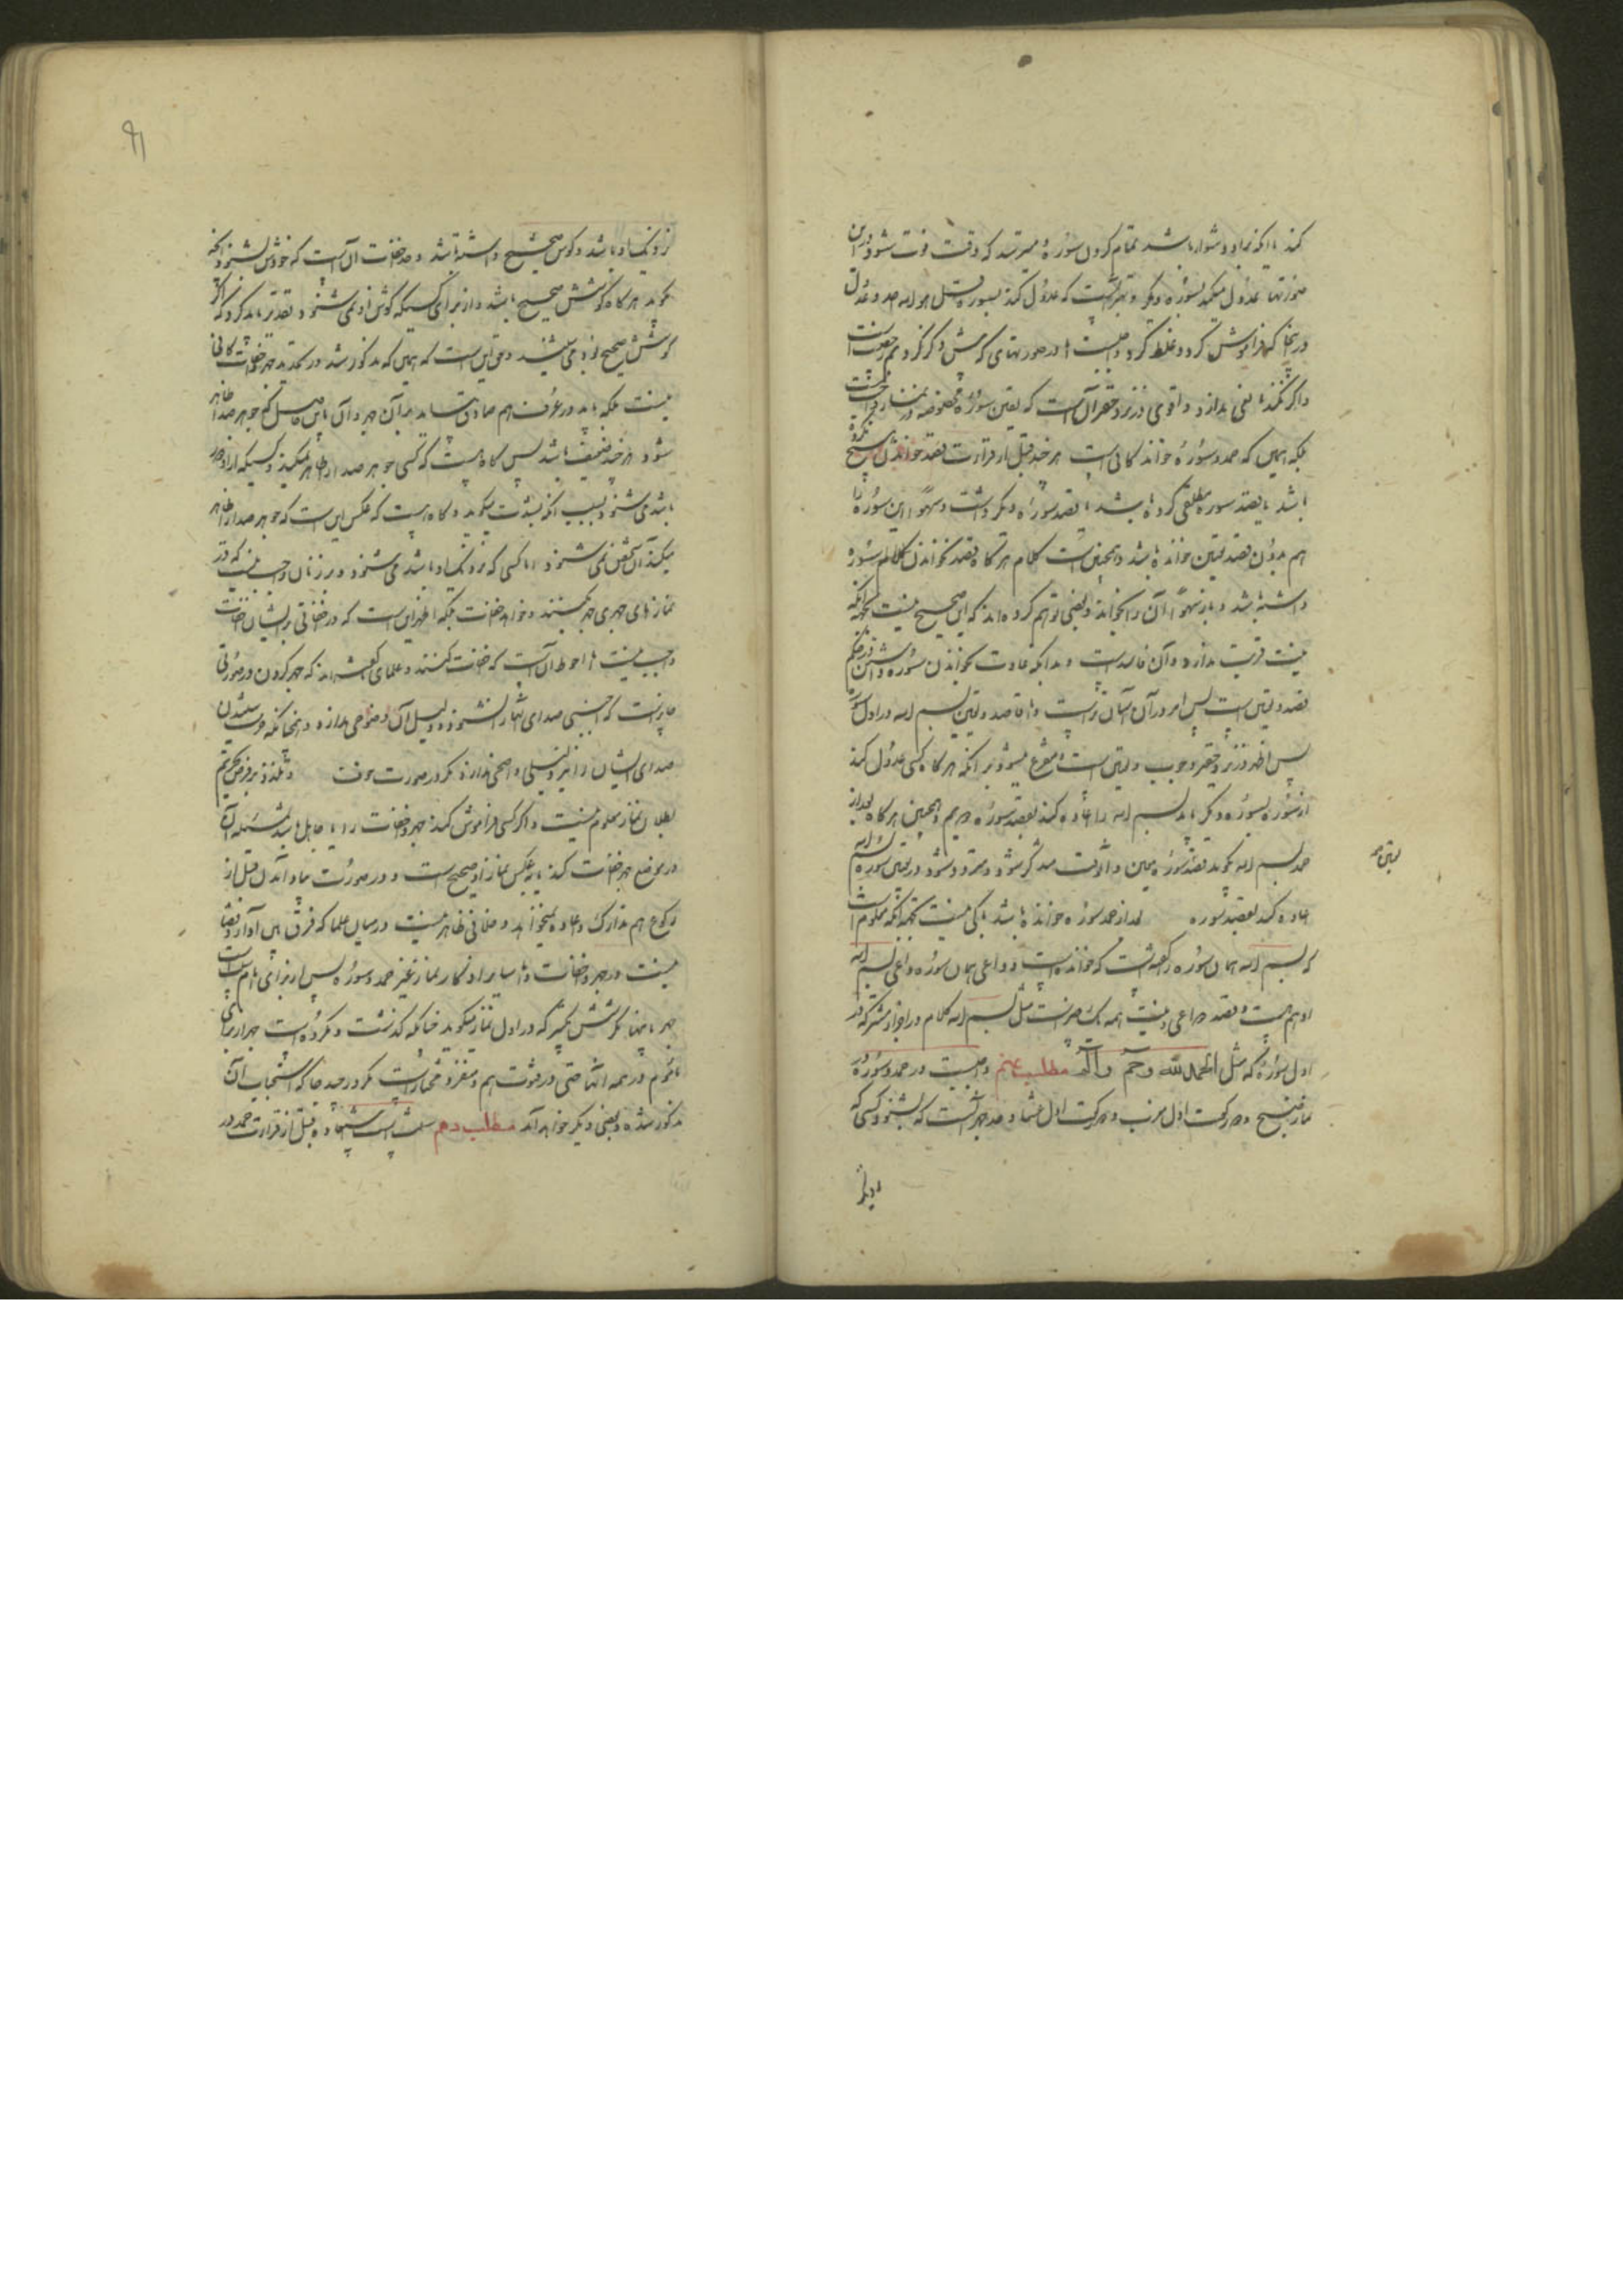 کند یا آنکه بر او دشوار باشد تمام کردن سوره میترسد که وقت فوت شود در این
صورتها عدول میکند بسوره دیگر و بهتر آنست که عدول کند بسوره قل هو الله احد و عدول
در اینجا که فراموش کرد و غلط کرد واجبست اما در صورتهای
و اگر نکند نقصی ندارد و اقوی در نزد حقیر آن است که تعیین سوره مخصوصه در نماز واجب نیست
بلکه همین که حمد و سوره خواند کافی است هر چند قبل از قرائت قصد خواندن هیچ نکرده
باشد یا قصد سوره مطلقی کرده باشد یا قصد سوره دیگر داشت و سهوا این سوره را
هم بدون قصد تعیین خوانده باشد و همچنین است کلام هرگاه قصد نخواندن کلام سوره
داشته باشد و باز سهوا آن را بخواند و بعضی توهم کرده‌اند که این صحیح نیست بجهة آنکه
نیت قربت ندارد و آن فاسد است و بدانکه عادت بخواندن سوره داشتن در حکم
قصد و تعیین است پس امر در آن آسان است و اما قصد و تعیین بسم الله در اول سوره
پس اظهر در نزد حقیر وجوب تعیین است و متفرع میشود بر آنکه هرگاه کسی عدول کند
از سوره بسوره دیگر باید بسم الله را اعاده کند بقصد سوره دویم و همچنین هرگاه بعد از
حمد بسم الله بگوید بقصد سوره معین و آنوقت متذکر شود و متردد شود در تعیین سوره بسم الله
اعاده کند بقصد سوره بعد از حمد سوره خوانده باشد باکی نیست بجهة آنکه معلوم است
که بسم الله همان سوره را گفته است که خوانده است و داعی همان سوره داعی بسم الله
او هم هست و قصد داعی و نیت همه یک است مثل بسم الله کلام در اجزاء مشترکه در
اول سوره که مثل الحمد لله و حم و الم مطلب نهم واجبست در حمد و سوره
نماز صبح و دو رکعت اول مغرب و دو رکعت اول عشا و حد جهر آنست که بشنود کسی که
نزدیک او باشد و گوش صحیح داشته باشد و حد اخفات آن است که خودش بشنود آنچه
گوید هرگاه گوشش صحیح باشد و از برای کسیکه گوش او نمی‌شنود تقدیر باید کرد که اگر
گوشش صحیح بود می‌شنید و حق این است که همین که مذکور شد در تحدید جهر و اخفات کافی
نیست بلکه باید در عرف هم صادق بیاید بر آن جهر و آن باین حاصل که جوهر صدا ظاهر
شود هر چند ضعیف باشد پس گاه هست که کسی جوهر صدا را ظاهر نمیکند و کسیکه از او دور
باشد می‌شنود بسبب آنکه بشدت میگوید و گاه هست که عکس این است که جوهر صدا را ظاهر
میکند آن شخص نمی‌شنود اما کسی که نزدیک او باشد می‌شنود و بر زنان واجب نیست که در
نمازهای جهری جهر کنند و خواه اخفات بلکه اظهر این است که در اخفاتی بر ایشان اخفات
واجب نیست اما احوط آن است که اخفات کنند و علما گفته‌اند که جهر کردن در صورتی
جایز است که اجنبی صدای ایشان را نشنود و دلیل آن وضوحی ندارد و همچنانکه حرمت شنیدن
صدای ایشان را نیز دلیلی واضحی ندارد مگر در صورت خوف و تلذذ و بر فرض تحریم
بطلان نماز معلوم نیست و اگر کسی فراموش کند جهر و اخفات را یا جاهل باشد بمسئله آن
در موضع جهر اخفات کند یا بعکس نماز او صحیح است و در صورت یاد آمدن قبل از
رکوع هم تدارک و اعاده نمیخواهد و خلافی ظاهر نیست در میان علما که فرق بین ادا و قضا
نیست در جهر و اخفات و اما سایر اذکار نماز غیر حمد و سوره پس از برای امام سنت است
جهر بآنها مگر شش تکبیر که در اول نماز میگوید چنانکه گذشت و مکروه است جهر از برای
مأموم در همه آنها حتی در قنوت هم و منفرد مختار است مگر در چند جا که استحباب آن
مذکور شده و بعضی دیگر خواهد آمد مطلب دهم سنت است استعاذه قبل از قرائت حمد در